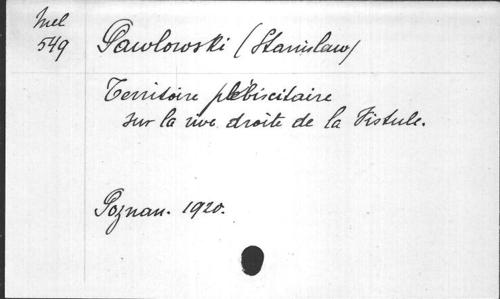 Mel
549
Pawlowski (Stanislaw)
Territoire plébiscitaire
sur la rive droite de la Vistule.
Poznan. 1920.